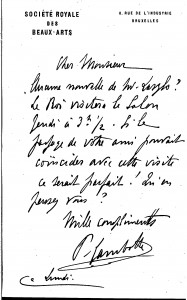 SOCIÉTÉ ROYALE
DES
BEAUX-ARTS
RUE DE L'INDUSTRIE
BRUXELLES
Cher Monsieur
Aucune nouvelle de M. Laszlo ?
Le Roi visitera le Salon
Jeudi à 3 h 1/2. Si le
passage de votre ami pouvait
coïncider avec cette visite
ce serait parfait ! Qu'en
pensez vous ?
Mille compliments
P. Lambotte
Ce Lundi.